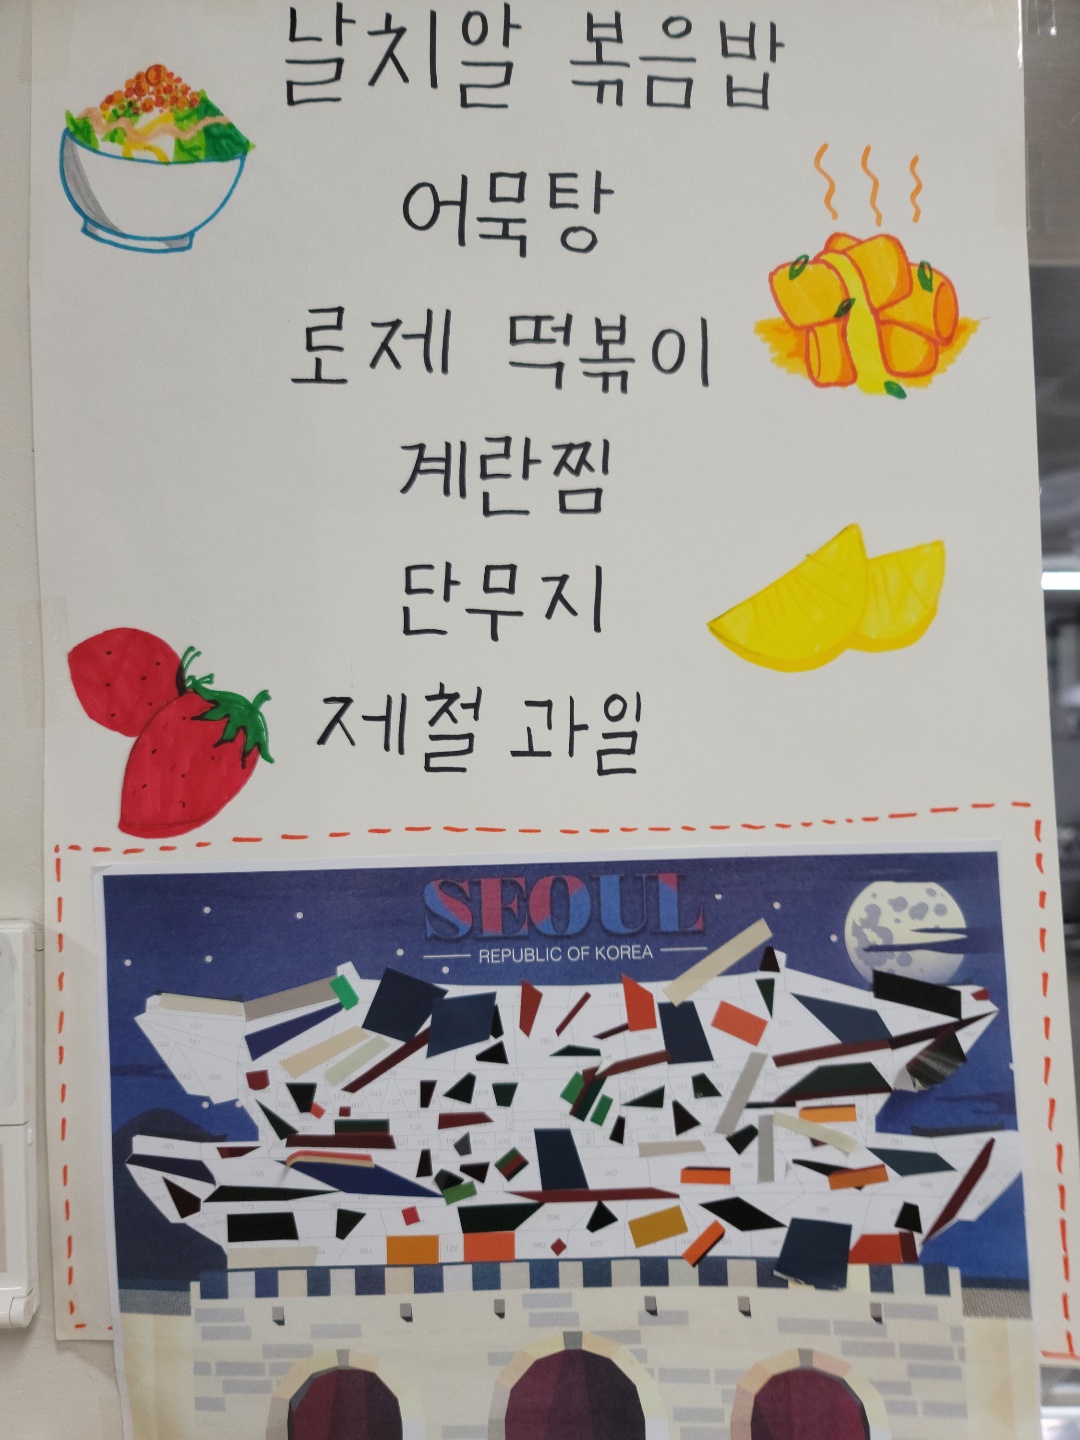 날치알 볶음밥
어묵탕
로제 떡볶이
계란찜
단무지
제철 과일
SEOUL
REPUBLIC OF KOREA